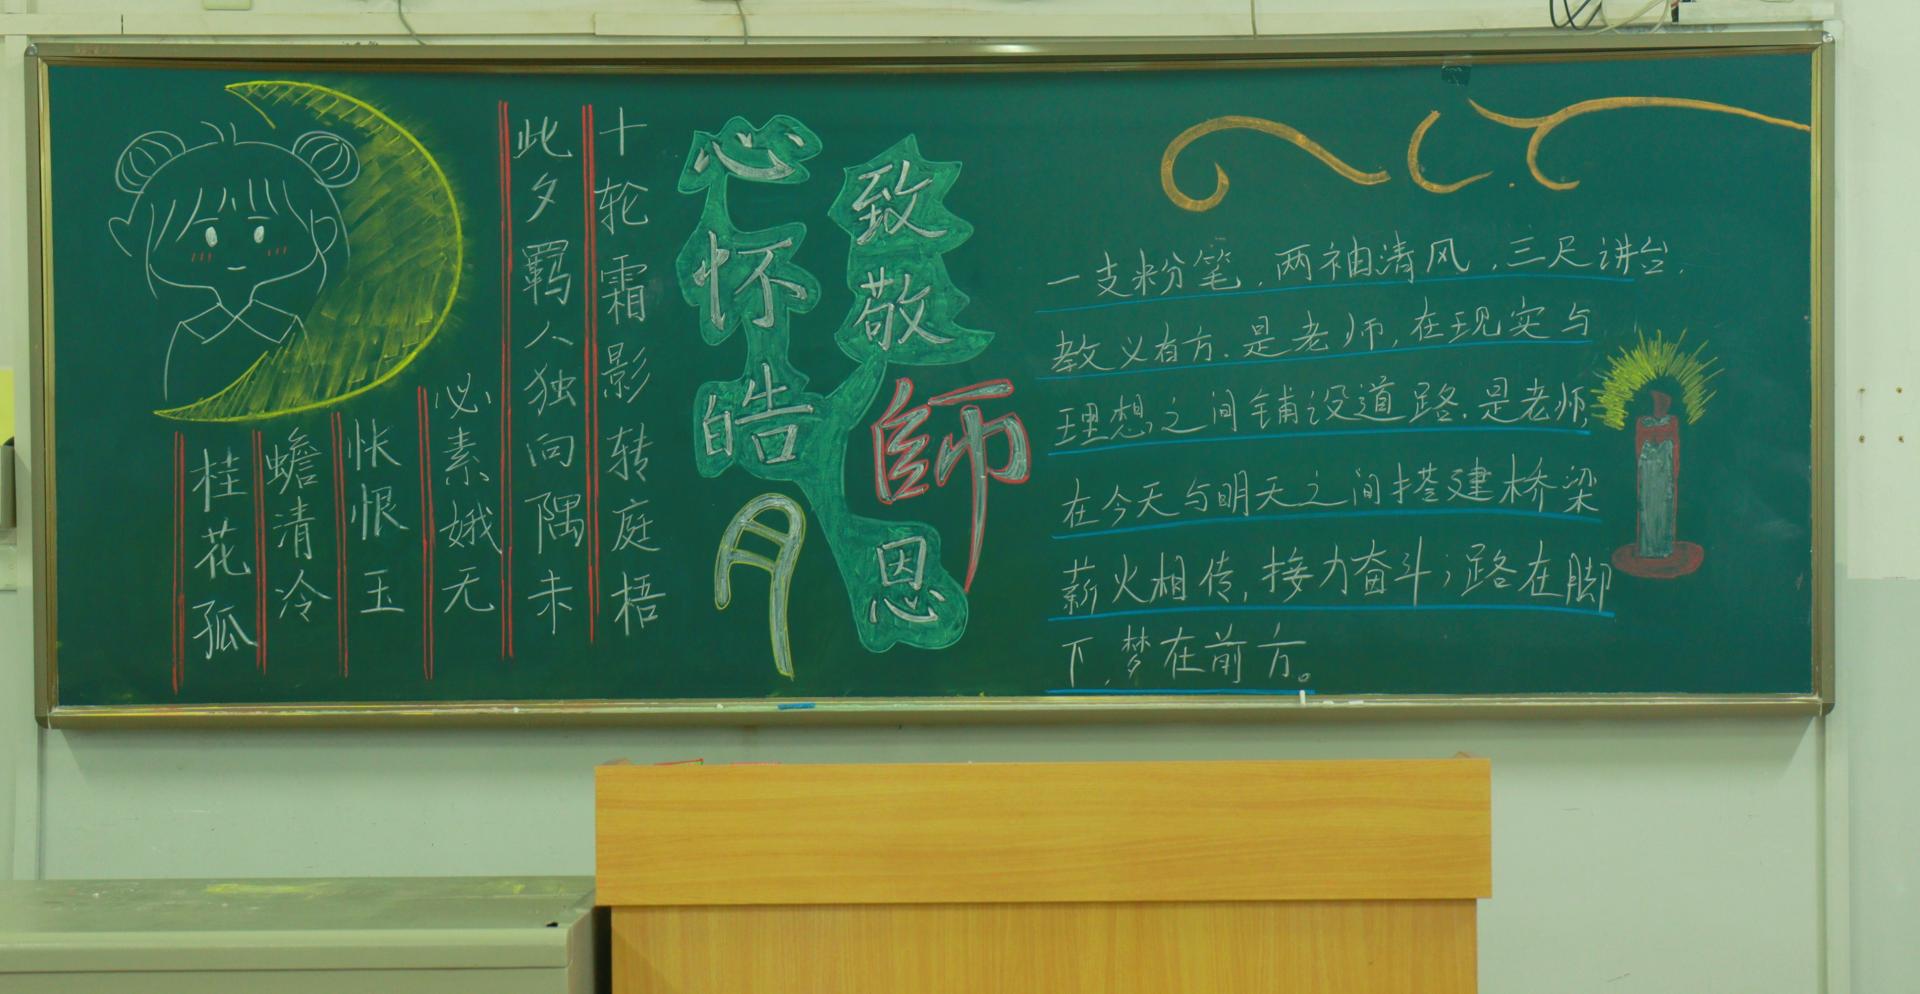 致敬師恩
心怀皓月
十轮霜影转庭梧
此夕羁人独向隅未
必素娥无
怅恨玉
蟾清冷
桂花孤
一支粉笔,两袖清风,三尺讲台,
教义有方.是老师,在现实与
理想之间铺设道路.是老师,
在今天与明天之间搭建桥梁
薪火相传,接力奋斗;路在脚
下,梦在前方。